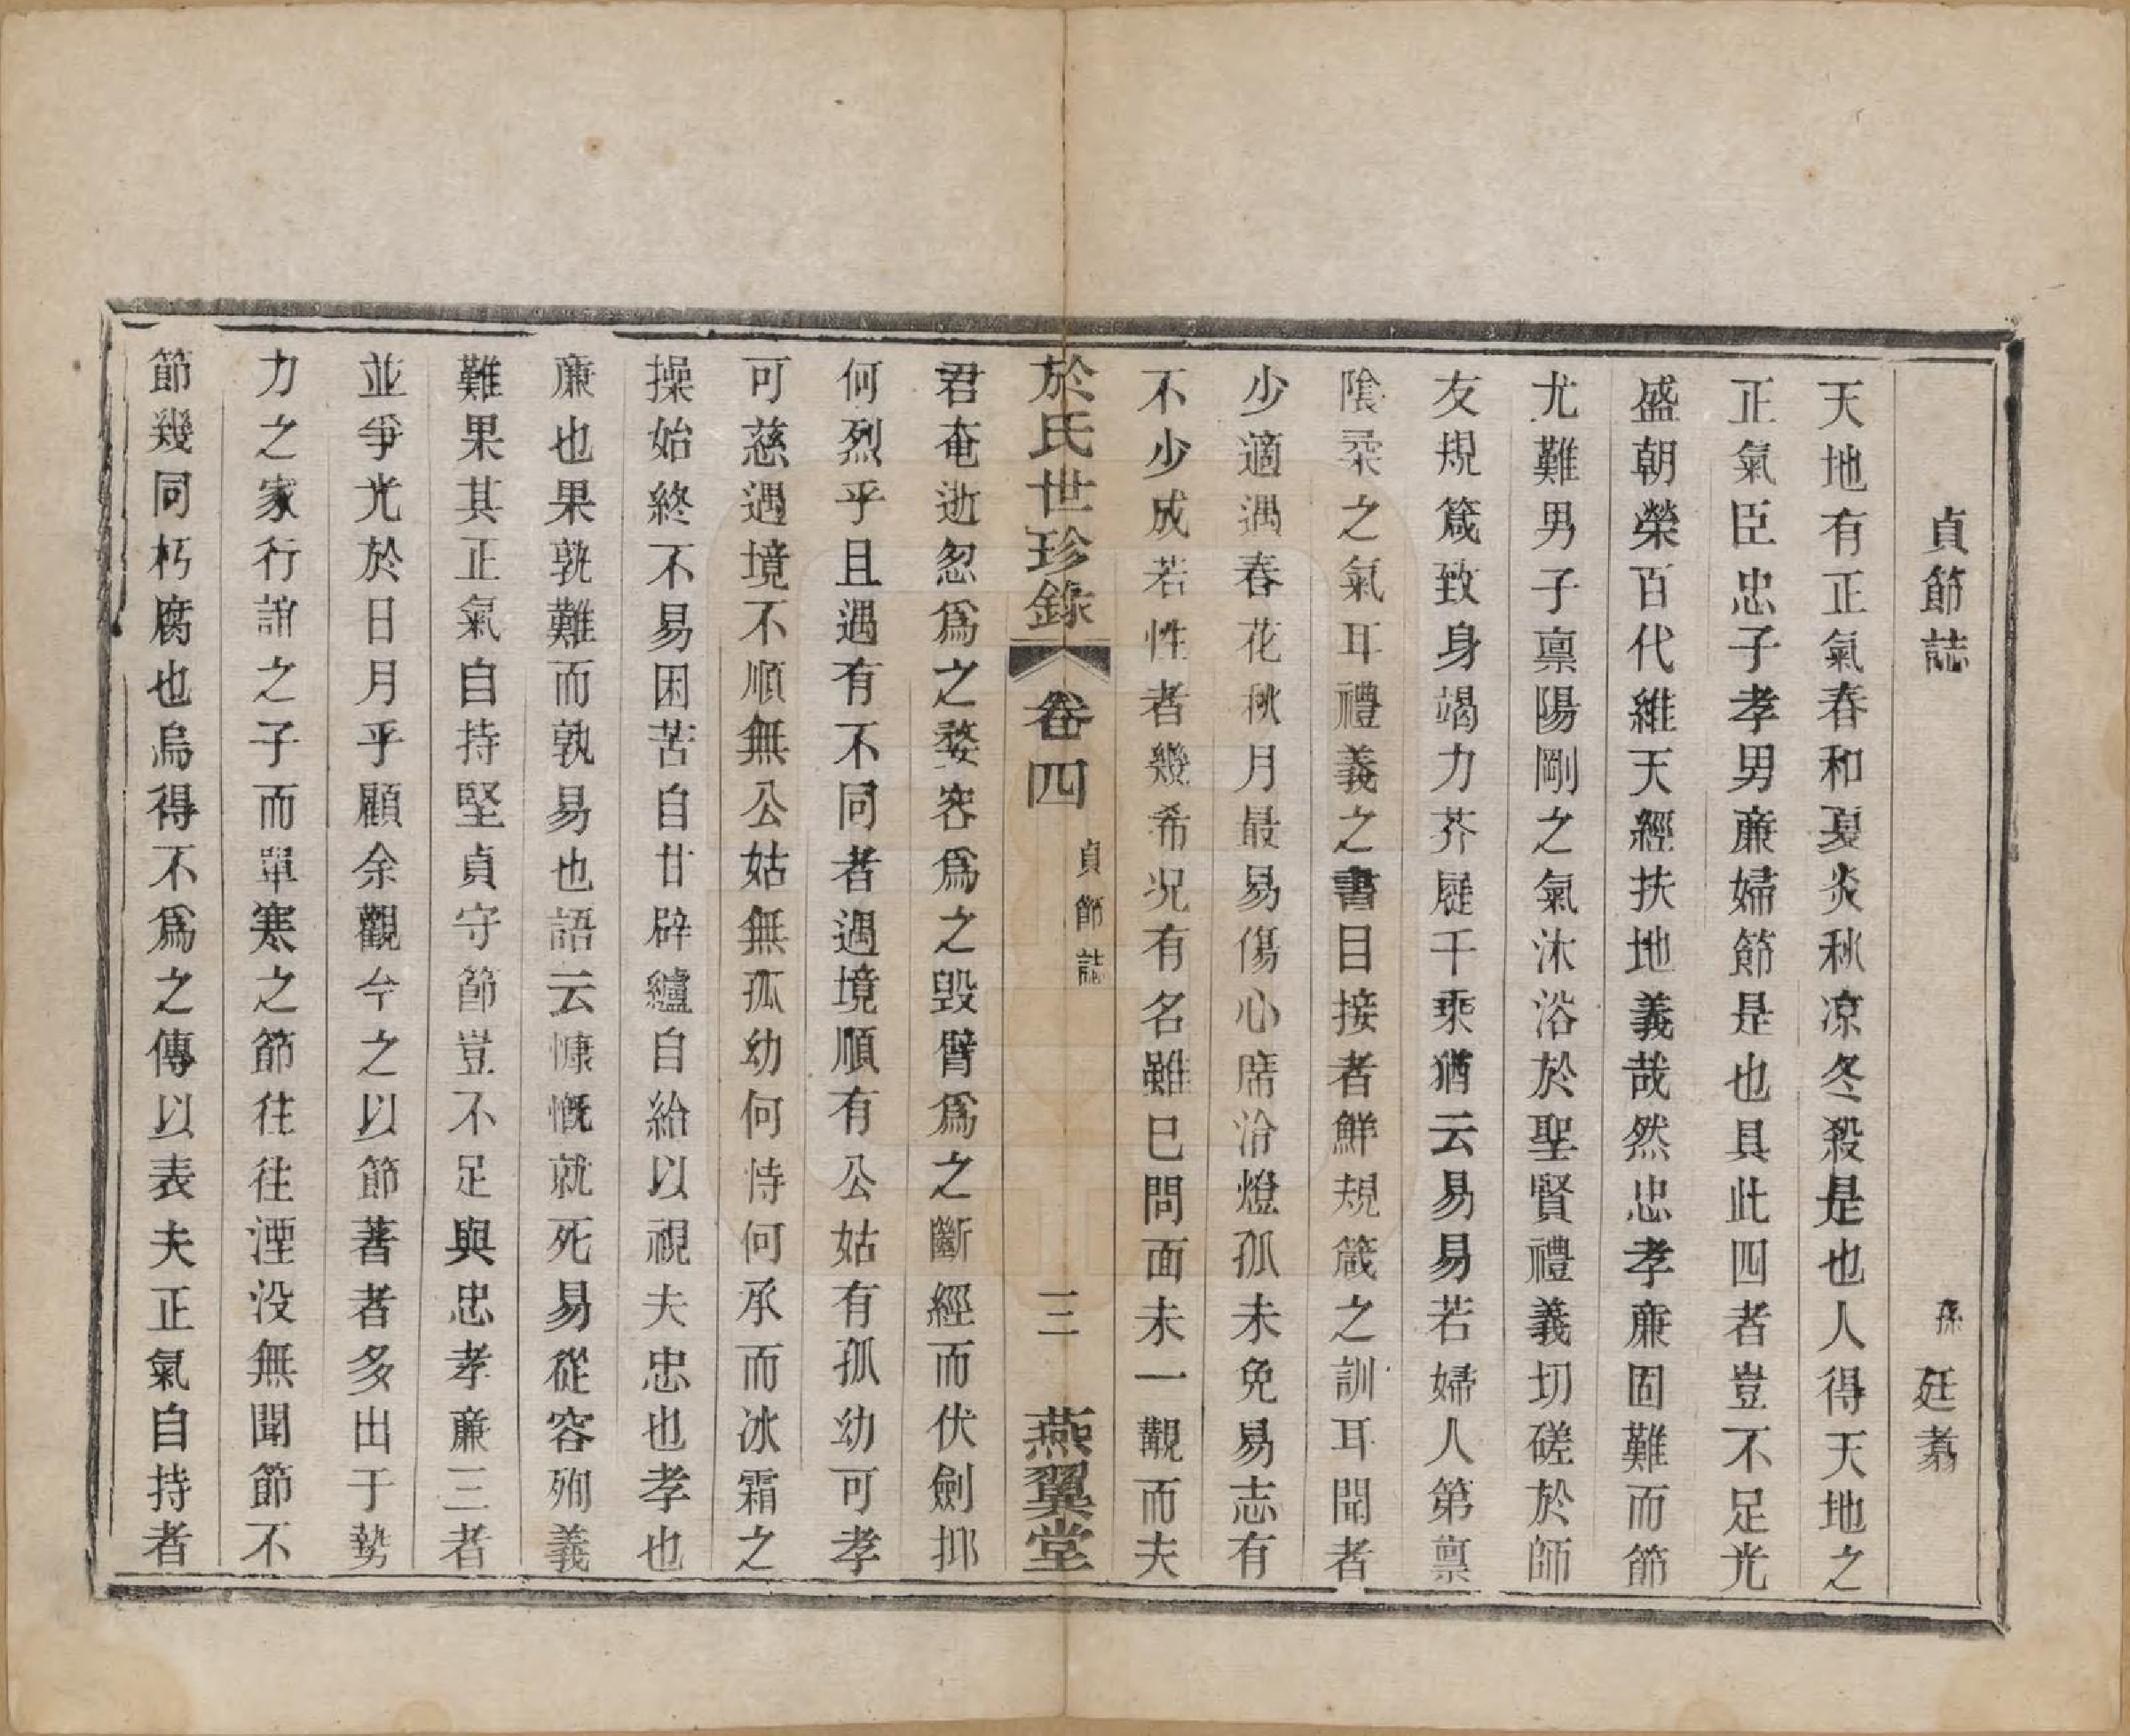 貞節誌 孫廷翥
天地有正氣春和夏炎秋凉冬殺是也人得天地之
正氣臣忠子孝男亷婦節是也具此四者豈不足光
盛朝榮百代維天經扶地義哉然忠孝亷固難而節
尤難男子禀陽剛之氣沐浴於聖賢禮義切磋於師
友規箴致身竭力芥屣千乘猶云易易若婦人第禀
陰柔之氣耳禮義之書目接者鮮規箴之訓耳聞者
少適遇春花秋月最易傷心席冷燈孤未免易志有
不少成若性者幾希况有名雖已問面未一觀而夫
於氏世珍錄 卷四 貞節誌 三 燕翼堂
君奄逝忽爲之嫠容爲之毀臂爲之斷經而伏劍抑
何烈乎且遇有不同者遇境順有公姑有孤幼可孝
可慈遇境不順無公姑無孤幼何恃何承而冰霜之
操始終不易困苦自甘辟纑自給以視夫忠也孝也
亷也果孰難而孰易也語云慷慨就死易從容殉義
難果其正氣自持堅貞守節豈不足與忠孝亷三者
並爭光於日月乎顧余觀今之以節著者多出于勢
力之家行誼之子而單寒之節往往湮没無聞節不
節幾同朽腐也烏得不爲之傳以表夫正氣自持者